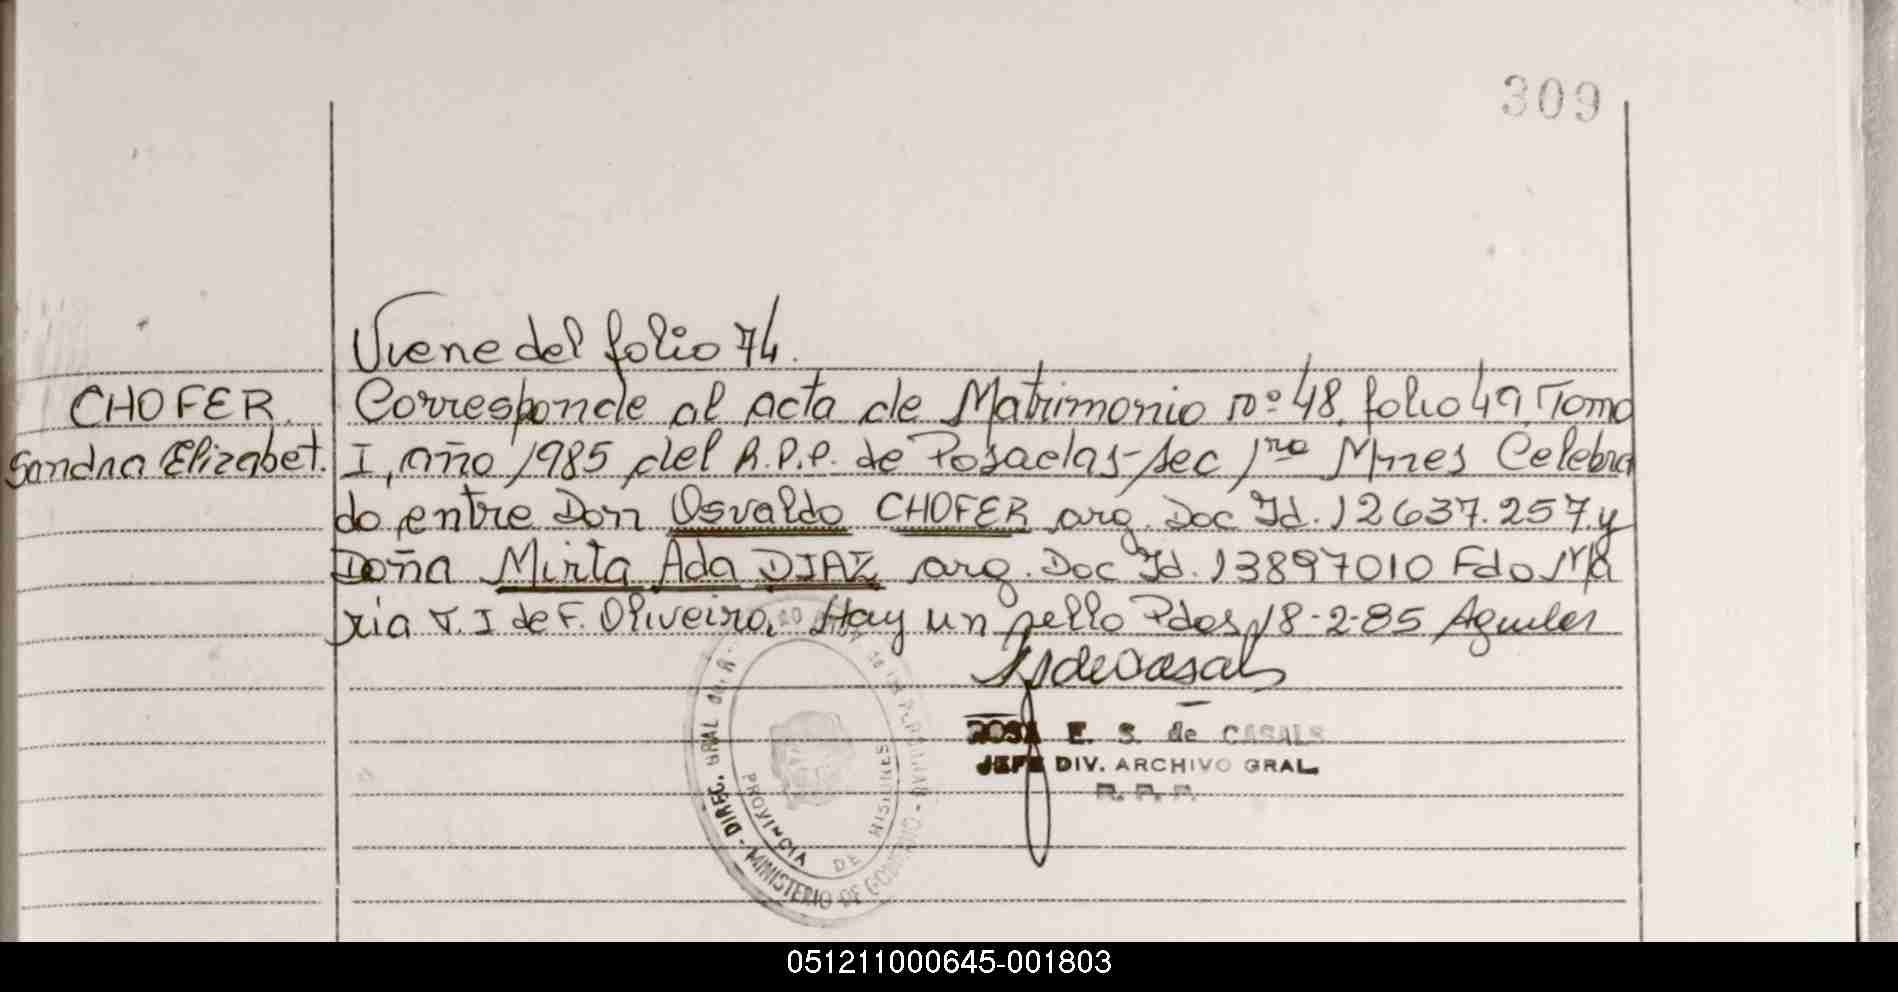 309
Viene del folio 74.
CHOFER Corresponde al acta de Matrimonio nº 48, folio 49, Tomo
Sandna Elizabet. I, año 1985, del R.P.P. de Posadas-sec 1ra Mnes Celebra
do entre Don Osvaldo CHOFER arg. Doc Id. 12637.257 y
Doña Mirta Ada DIAZ arg. Doc Id. 13897010 Fdo Ma
ria T. I de F. Oliveira. Hay un sello Pdas, 18-2-85
ROSA E. S. de CASALS
JEFE DIV. ARCHIVO GRAL.
R. P. P.
DIREC. GRAL
PROVINCIA DE MISIONES
MINISTERIO DE GOBIERNO
051211000645-001803